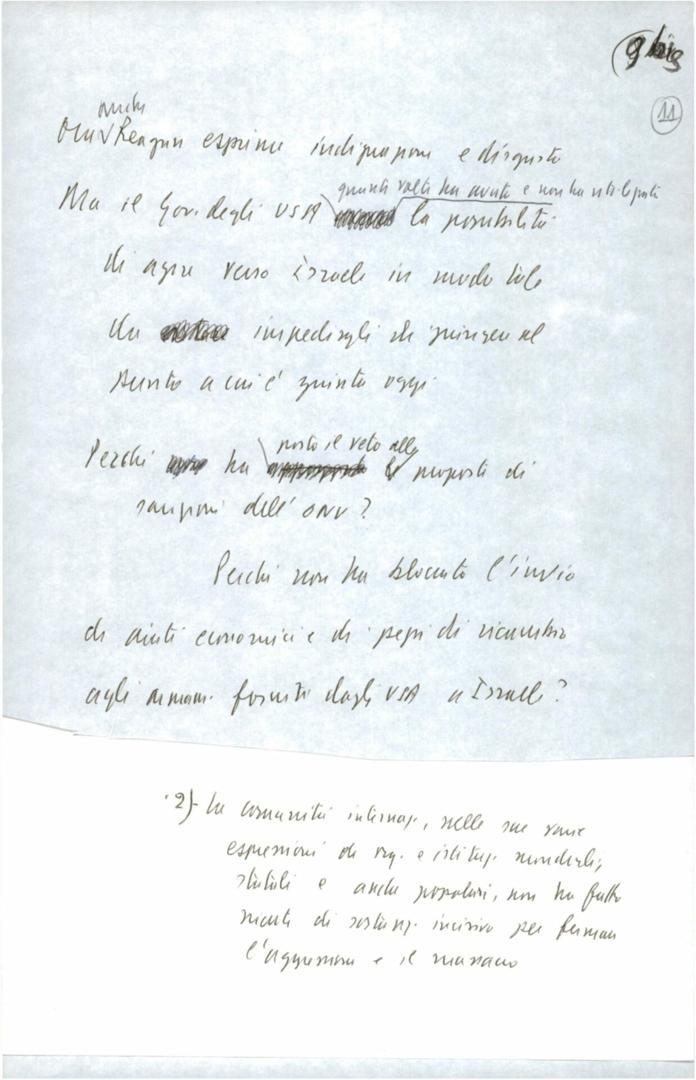 9 bis
11
anche
Ora Reagan esprime indignazione e disgusto
quante volte ha avuto e non ha
Ma il Gov. degli USA la possibilità
di agire verso Israele in modo tale
da impedirgli di giungere al
punto a cui è giunto oggi.
posto il veto alle
Perché ha proposte di
sanzioni dell'ONU?
Perché non ha bloccato l'invio
di aiuti economici e di pezzi di ricambio
agli armam. forniti dagli USA a Israele?
2) - La comunità internaz., nelle sue varie
espressioni di org. e istituz. mondiali,
statali e anche popolari, non ha fatto
niente di sostanz. incisivo per fermare
l'aggressione e il massacro